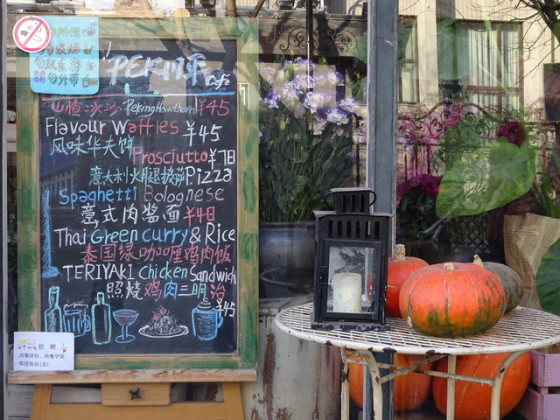 PEKING
Cafe
山楂冰沙 Peking Hawthorn ¥45
Flavour Waffles ¥45
风味华夫饼
Prosciutto ¥78
意大利火腿披萨 Pizza
Spaghetti Bolognese
意式肉酱面 ¥48
Thai Green curry & Rice
泰国绿咖喱鸡肉饭
TERIYAKI chicken Sandwich
照烧鸡肉三明治
¥45